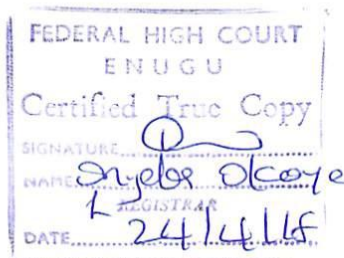 FEDERAL HIGH COURT
ENUGU
Certified True Copy
SIGNATURE
NAME Okoye
REGISTRAR
DATE 24/4/18